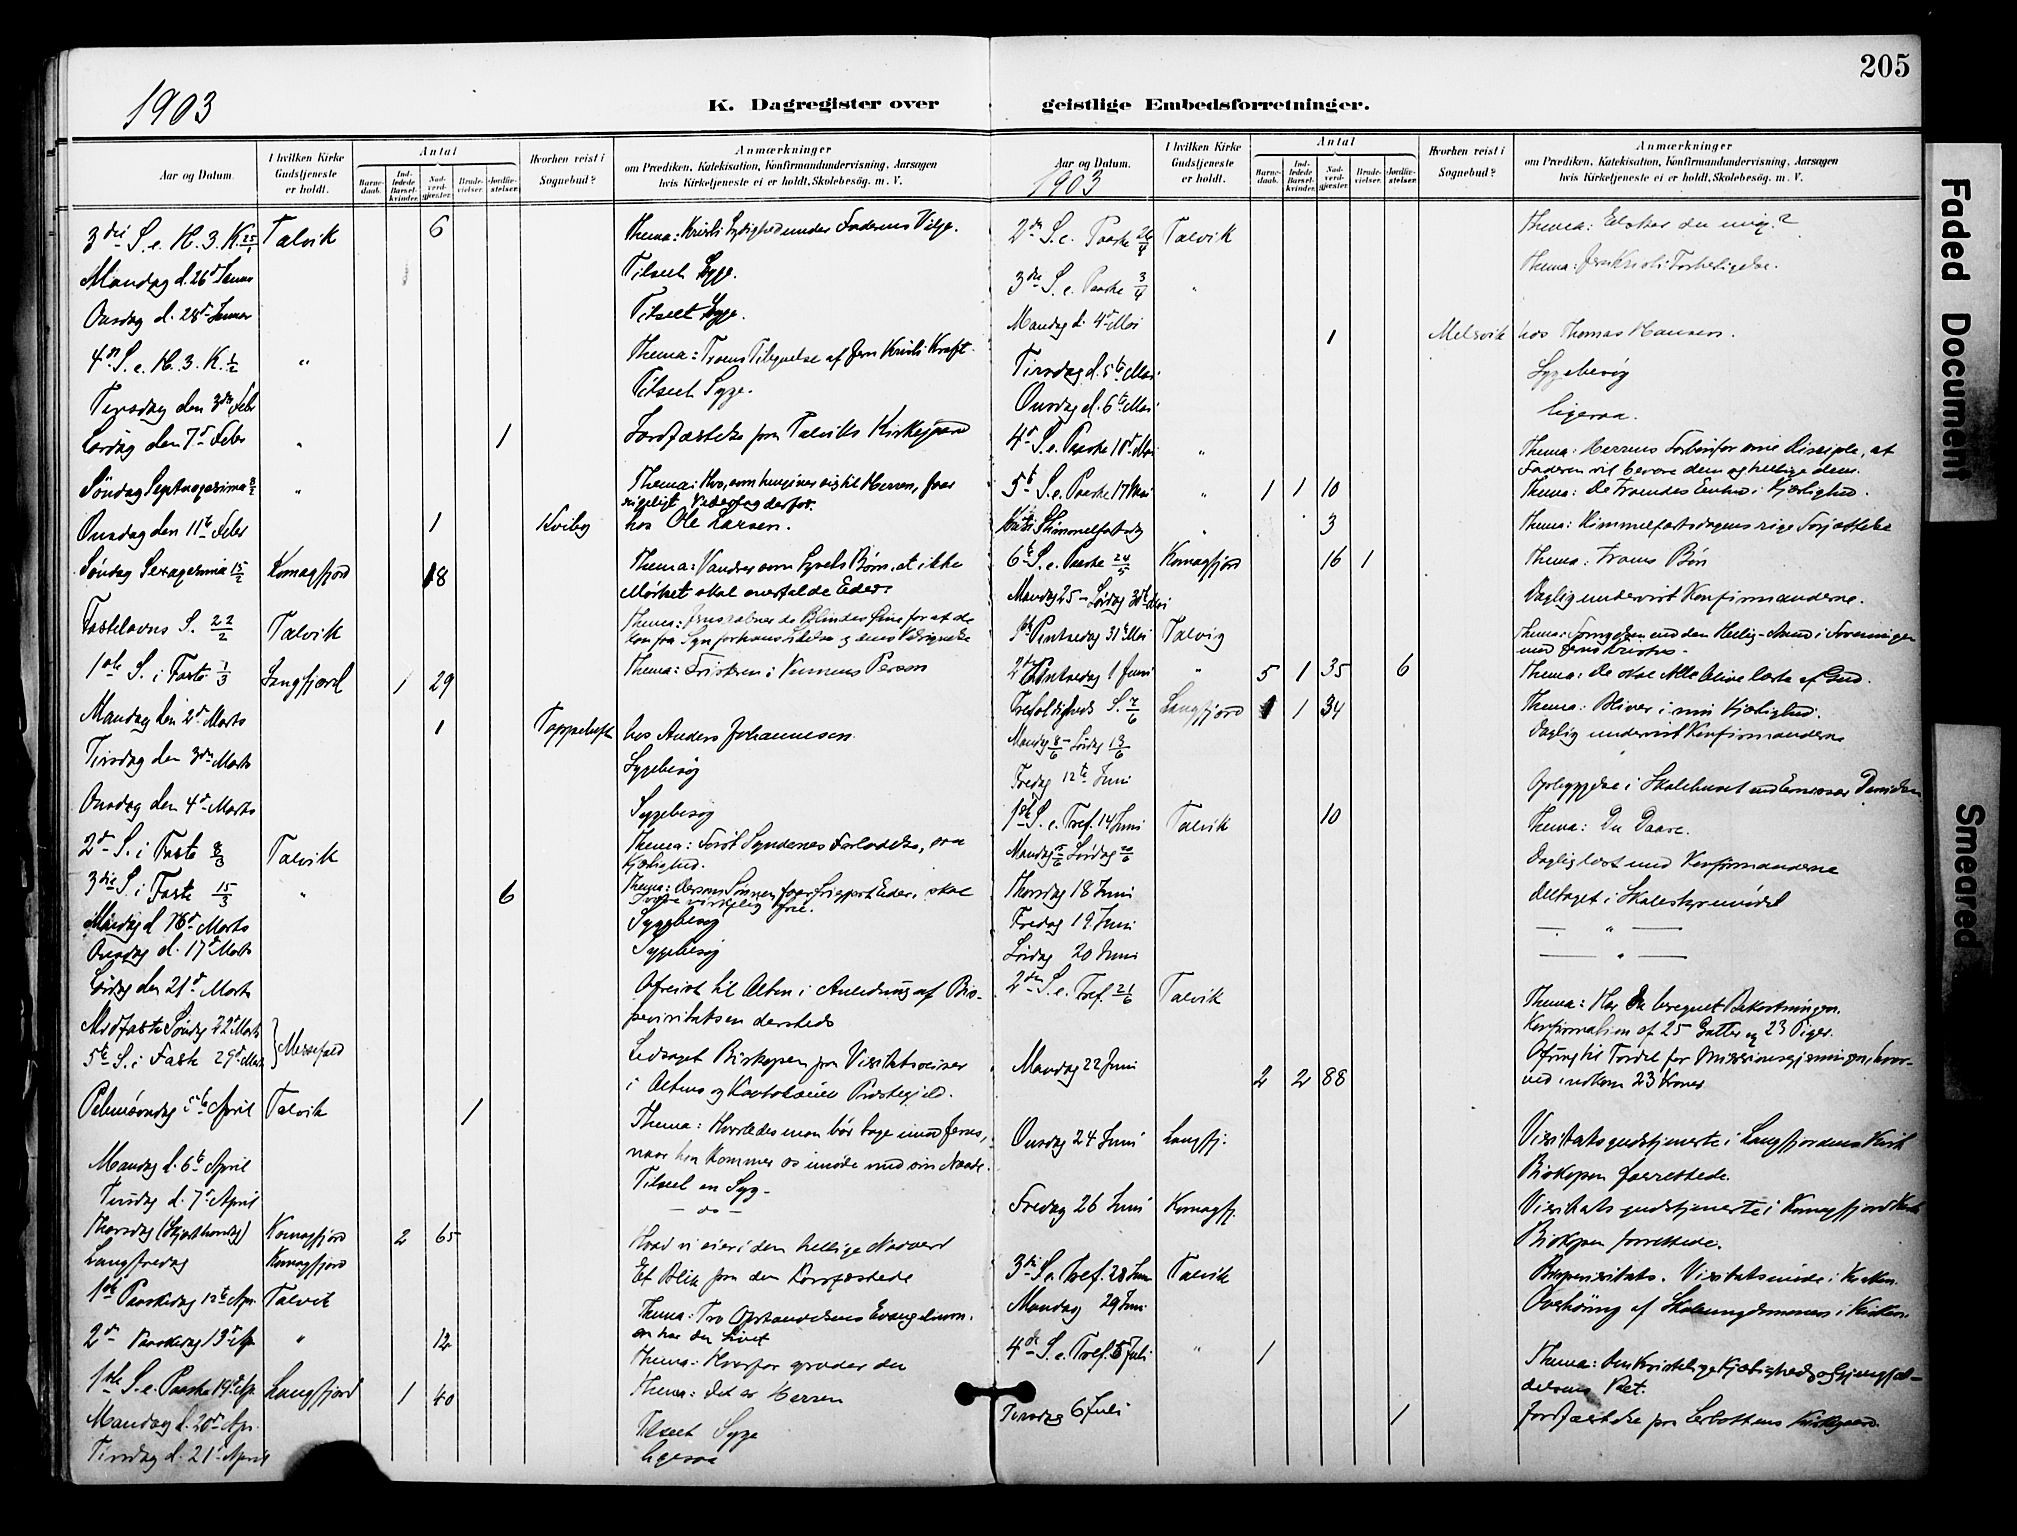 205
1903
K. Dagregister over geistlige Embedsforretninger.
Aar og Datum.
I hvilken Kirke Gudstjeneste er holdt.
Antal
Barnedaab.
Indledede Barselkvinder.
Nadverdgjester.
Brudevielser.
Jordfæstelser.
Hvorhen reist i Sognebud?
Anmærkninger
om Prædiken, Katekisation, Konfirmandundervisning, Aarsagen
hvis Kirketjeneste ei er holdt, Skolebesøg. m. V.
3die S. e. H. 3. K. 25/1 Talvik 6 Thema: Kristi Lydighed under Faderens Vilje.
Mandag d. 26d Januar Tilseet Syge.
Onsdag d. 28d Januar Tilseet Syge.
4de S. e. H. 3. K. 1/2 " Thema: Troens Tilegnelse af Jesu Kristi Kraft.
Tirsdag den 3die Febr Tilseet Syge.
Lørdag den 7d Febr " 1 Jordfæstelse paa Talviks Kirkegaard
Søndag Septuagesima 8/2 " Thema: Hvo, som hengiver sig til Herren, faar
rigeligt Vederlag derfor.
Onsdag den 11te Febr 1 Kviby hos Ole Larsen.
Søndag Sexagesima 15/2 Komagfjord 18 Thema: Vandrer som Lysets Børn, at ikke
Mørket skal overfalde Eder.
Fastelavns S. 22/2 Talvik Thema: Jesus aabner de Blindes Øine for at de
1ste S. i Faste 1/3 Langfjord 1 29 Thema: Fristeren i Vennens Person
Mandag den 2d Marts 1 Toppebugt hos Anders Johannesen
Tirsdag den 3die Marts Sygebesøg
Onsdag den 4d Marts Sygebesøg
2d S. i Faste 8/3 Talvik Thema: Først Syndenes Forladelse, saa
Kjærlighed.
3die S. i Faste 15/3 " 6 Thema: Dersom Sønnen faar frigjort Eder, skal
I være virkelig frie.
Mandag d. 16d Marts Sygebesøg
Onsdag d. 17d Marts Sygebesøg
Lørdag den 21d Marts Afreist til Alten i Anledning af Bis-
pevisitatsen dersteds
Midfaste Søndag 22d Marts Messefald
5te S. i Faste 29d Marts Ledsaget Biskopen paa Visitatsreiser
i Altens og Kautokeino Præstegjeld.
Palmesøndag 5te April Talvik 1 Thema: Hvorledes man bør tage imod Jesus,
naar han kommer os imøde med sin Naade.
Mandag d. 6te April Tilseet en Syg
Tirsdag d. 7d April - do -
Thorsdag (Skjærthorsdag) Komagfjord 2 65 Hvad vi eier i den hellige Nadverd
Langfredag Komagfjord Et Blik paa den Korsfæstede
1ste Paaskedag 12te Apr. Talvik Thema: Tro Opstandelsens Evangelium,
saa har du Livet
2d Paaskedag 13d Apr " 12 Thema: Hvorfor græder du
1ste S. e. Paaske 19d Apr Langfjord 1 40 Thema: Det er Herren
Mandag d. 20d Apr. Tilseet Syge
Tirsdag d. 21d April ligesaa
Aar og Datum.
1903
I hvilken Kirke Gudstjeneste er holdt.
Antal
Barnedaab.
Indledede Barselkvinder.
Nadverdgjester.
Brudevielser.
Jordfæstelser.
Hvorhen reist i Sognebud?
Anmærkninger
om Prædiken, Katekisation, Konfirmandundervisning, Aarsagen
hvis Kirketjeneste ei er holdt, Skolebesøg. m. V.
2den S. e. Paaske 26/4 Talvik Thema: Elsker du mig?
3die S. e. Paaske 3/4 " Thema: Jesu Kristi Forherligelse.
Mandag d. 4d Mai 1 Melsvik hos Thomas Hansen.
Tirsdag d. 5te Mai Sygebesøg
Onsdag d. 6te Mai ligesaa.
4d S. e. Paaske 10d Mai " Thema: Herrens Forbøn for sine Disciple, at
Faderen vil bevare dem og hellige dem.
5te S. e. Paaske 17 Mai " 1 1 10 Thema: De Troendes Enhed i Kjærlighed.
Kristi Himmelfartsdag " 3 Thema: Himmelfartsdagens rige Forjættelse
6te S. e. Paaske 24/5 Komagfjord 16 1 Thema: Troens Bøn
Mandag 25 - Lørdag 30te Mai Daglig undervist Konfirmanderne.
1ste Pintsedag 31te Mai Talvig Thema: Fornyelsen ved den Hellig-Aand i Foreningen
med Jesus Kristus.
2den Pintsedag 1 Juni " 5 1 35 6 Thema: De skal Alle blive lærte af Gud.
Trefoldigheds S. 7/6 Langfjord 1 1 34 Thema: Bliver i min Kjærlighed.
Mandag 8/6 - Lørdag 13/6 Daglig undervist Konfirmanderne
Fredag 12te Juni Opbyggelse i Skolehuset
1ste S. e. Tref. 14 Juni Talvik 10 Thema: Du Daare.
Mandag 15/6 Lørdag 20/6 Daglig læst med Konfirmanderne
Thorsdag 18 Juni Deltaget i Skolestyremødet
Fredag 19 Juni — " —
Lørdag 20 Juni — " —
2den S. e. Tref. 21/6 Talvik Thema: Har Du beregnet Bekostningen.
Konfirmation af 25 Gutter og 23 Piger.
Mandag 22 Juni 2 2 88 Ofring til Fordel for Missionsgjerningen, hvor-
ved indkom 23 Kroner
Onsdag 24 Juni Langfj. Visitatsgudstjeneste i Langfjordens Kirke
Biskopen forrettede.
Fredag 26 Juni Komagfj. Visitatsgudstjeneste i Komagfjord Kirke
Biskopen forrettede.
3die S. e. Tref. 28 Juni Talvik Bispevisitats. Visitatsmøde i Kirken.
Mandag 29 Juni Overhøring af Skoleungdommen i Kirken.
4de S. e. Tref. 5 Juli " 1 Thema: Den kristelige Kjærligheds og Gjengjæl-
delsens Ret.
Tirsdag 6 Juli 1 Jordfæstelse paa Lerbottens Kirkegaard.
Faded Document
Smeared